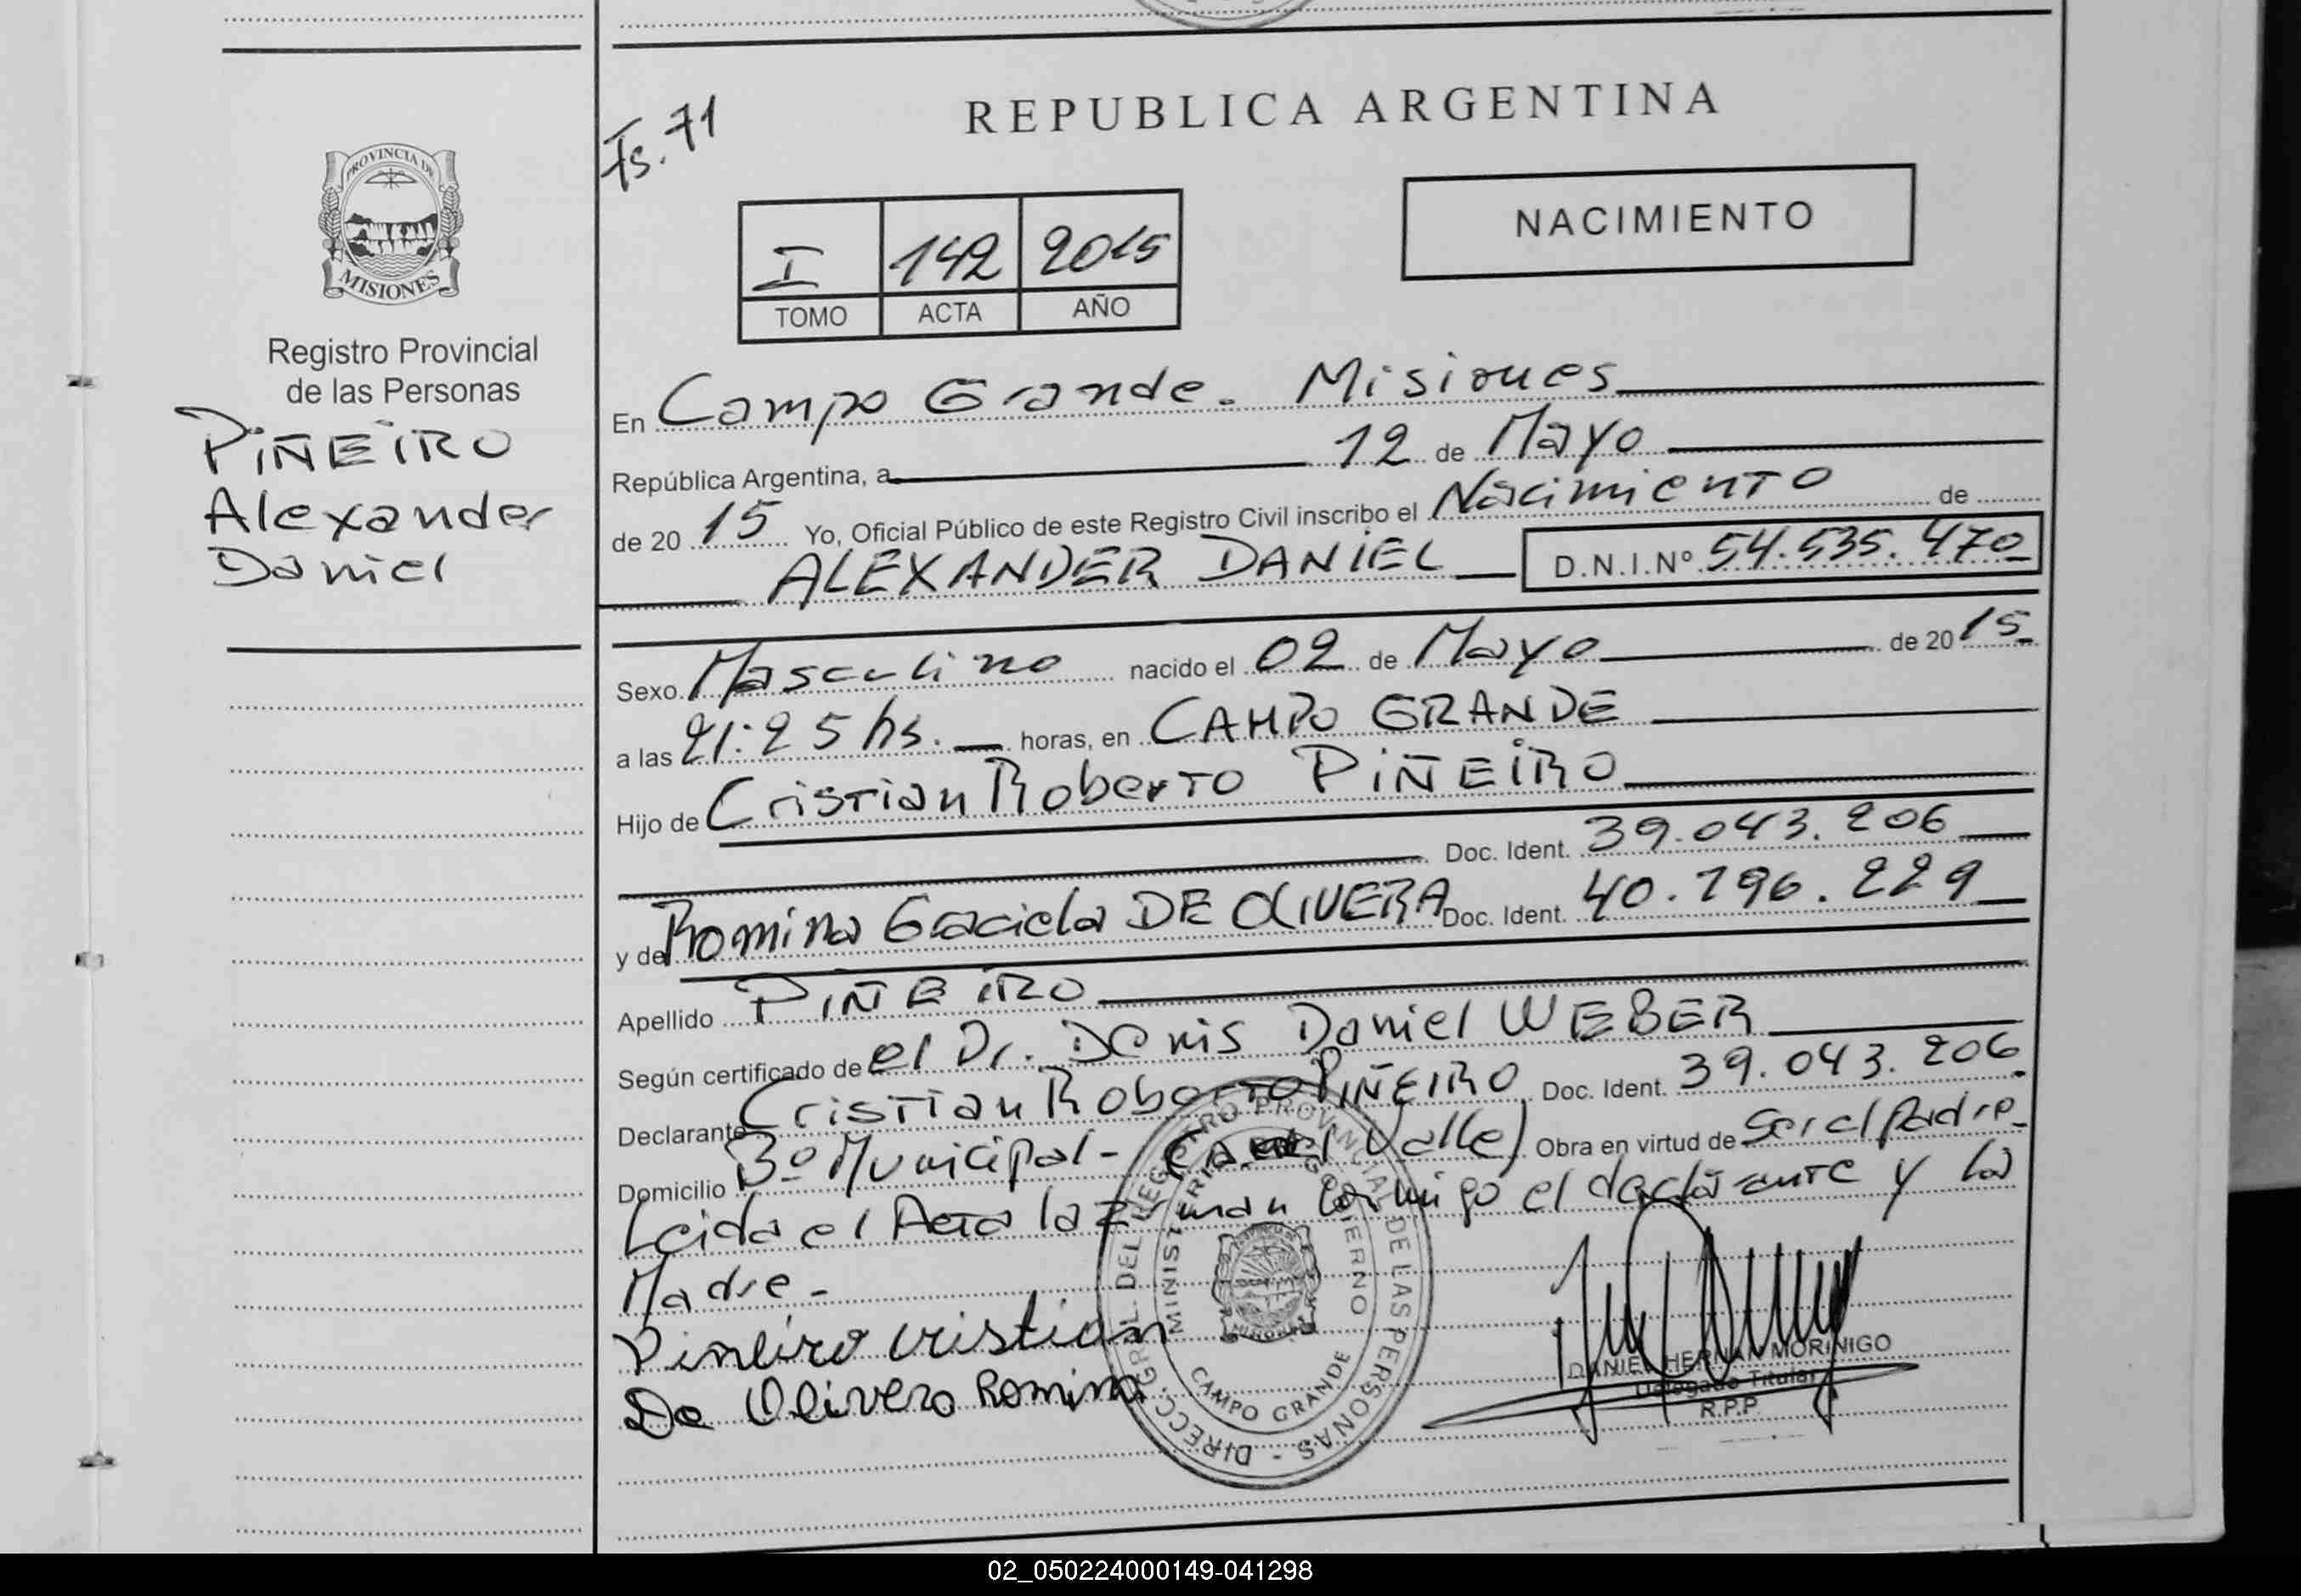 Fs. 71
REPUBLICA ARGENTINA
PROVINCIA DE
MISIONES
I 142 2015
TOMO ACTA AÑO
NACIMIENTO
Registro Provincial
de las Personas
PIÑEIRO
Alexander
Daniel
En Campo Grande. Misiones
República Argentina, a 12 de Mayo
de 20 15 Yo, Oficial Público de este Registro Civil inscribo el Nacimiento de
ALEXANDER DANIEL D.N.I.Nº 54.535.470
Sexo Masculino nacido el 02 de Mayo de 20 15
a las 21:25 hs. horas, en CAMPO GRANDE
Hijo de Cristian Roberto PIÑEIRO
Doc. Ident. 39.043.206
y de Romina Graciela DE OLIVERA Doc. Ident. 40.196.229
Apellido PIÑEIRO
Según certificado de el Dr. Denis Daniel WEBER
Declarante Cristian Roberto PIÑEIRO Doc. Ident. 39.043.206
Domicilio Bº Municipal - Valle) Obra en virtud de Ser el Padre
Leida el Acta la firman conmigo el declarante y la
Madre -
Piñeiro Cristian
De Olivera Romina
DIRECC. GRAL. DEL REGISTRO PROVINCIAL DE LAS PERSONAS -
MINISTERIO GOBIERNO
CAMPO GRANDE
DANIEL HERNAN MORINIGO
Delegado Titular
R.P.P
02_050224000149-041298